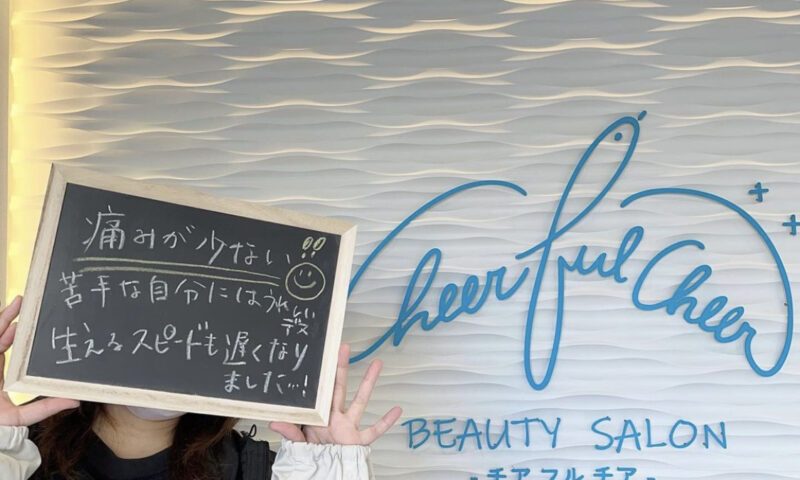 痛みが少ない!!
苦手な自分にはうれしいデス
生えるスピードも遅くなり
ました…!
Cheerful Cheer
BEAUTY SALON
- チアフルチア -